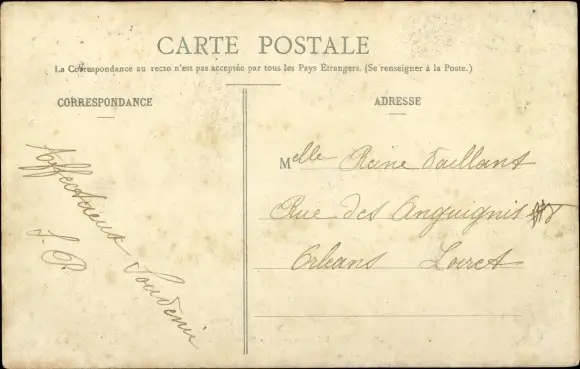 CARTE POSTALE
La Correspondance au recto n'est pas acceptée par tous les Pays Étrangers. (Se renseigner à la Poste.)
CORRESPONDANCE
ADRESSE
Affectueux Souvenir
S. P.
Melle Reine Vaillant
Rue des Anguignis
Orléans Loiret